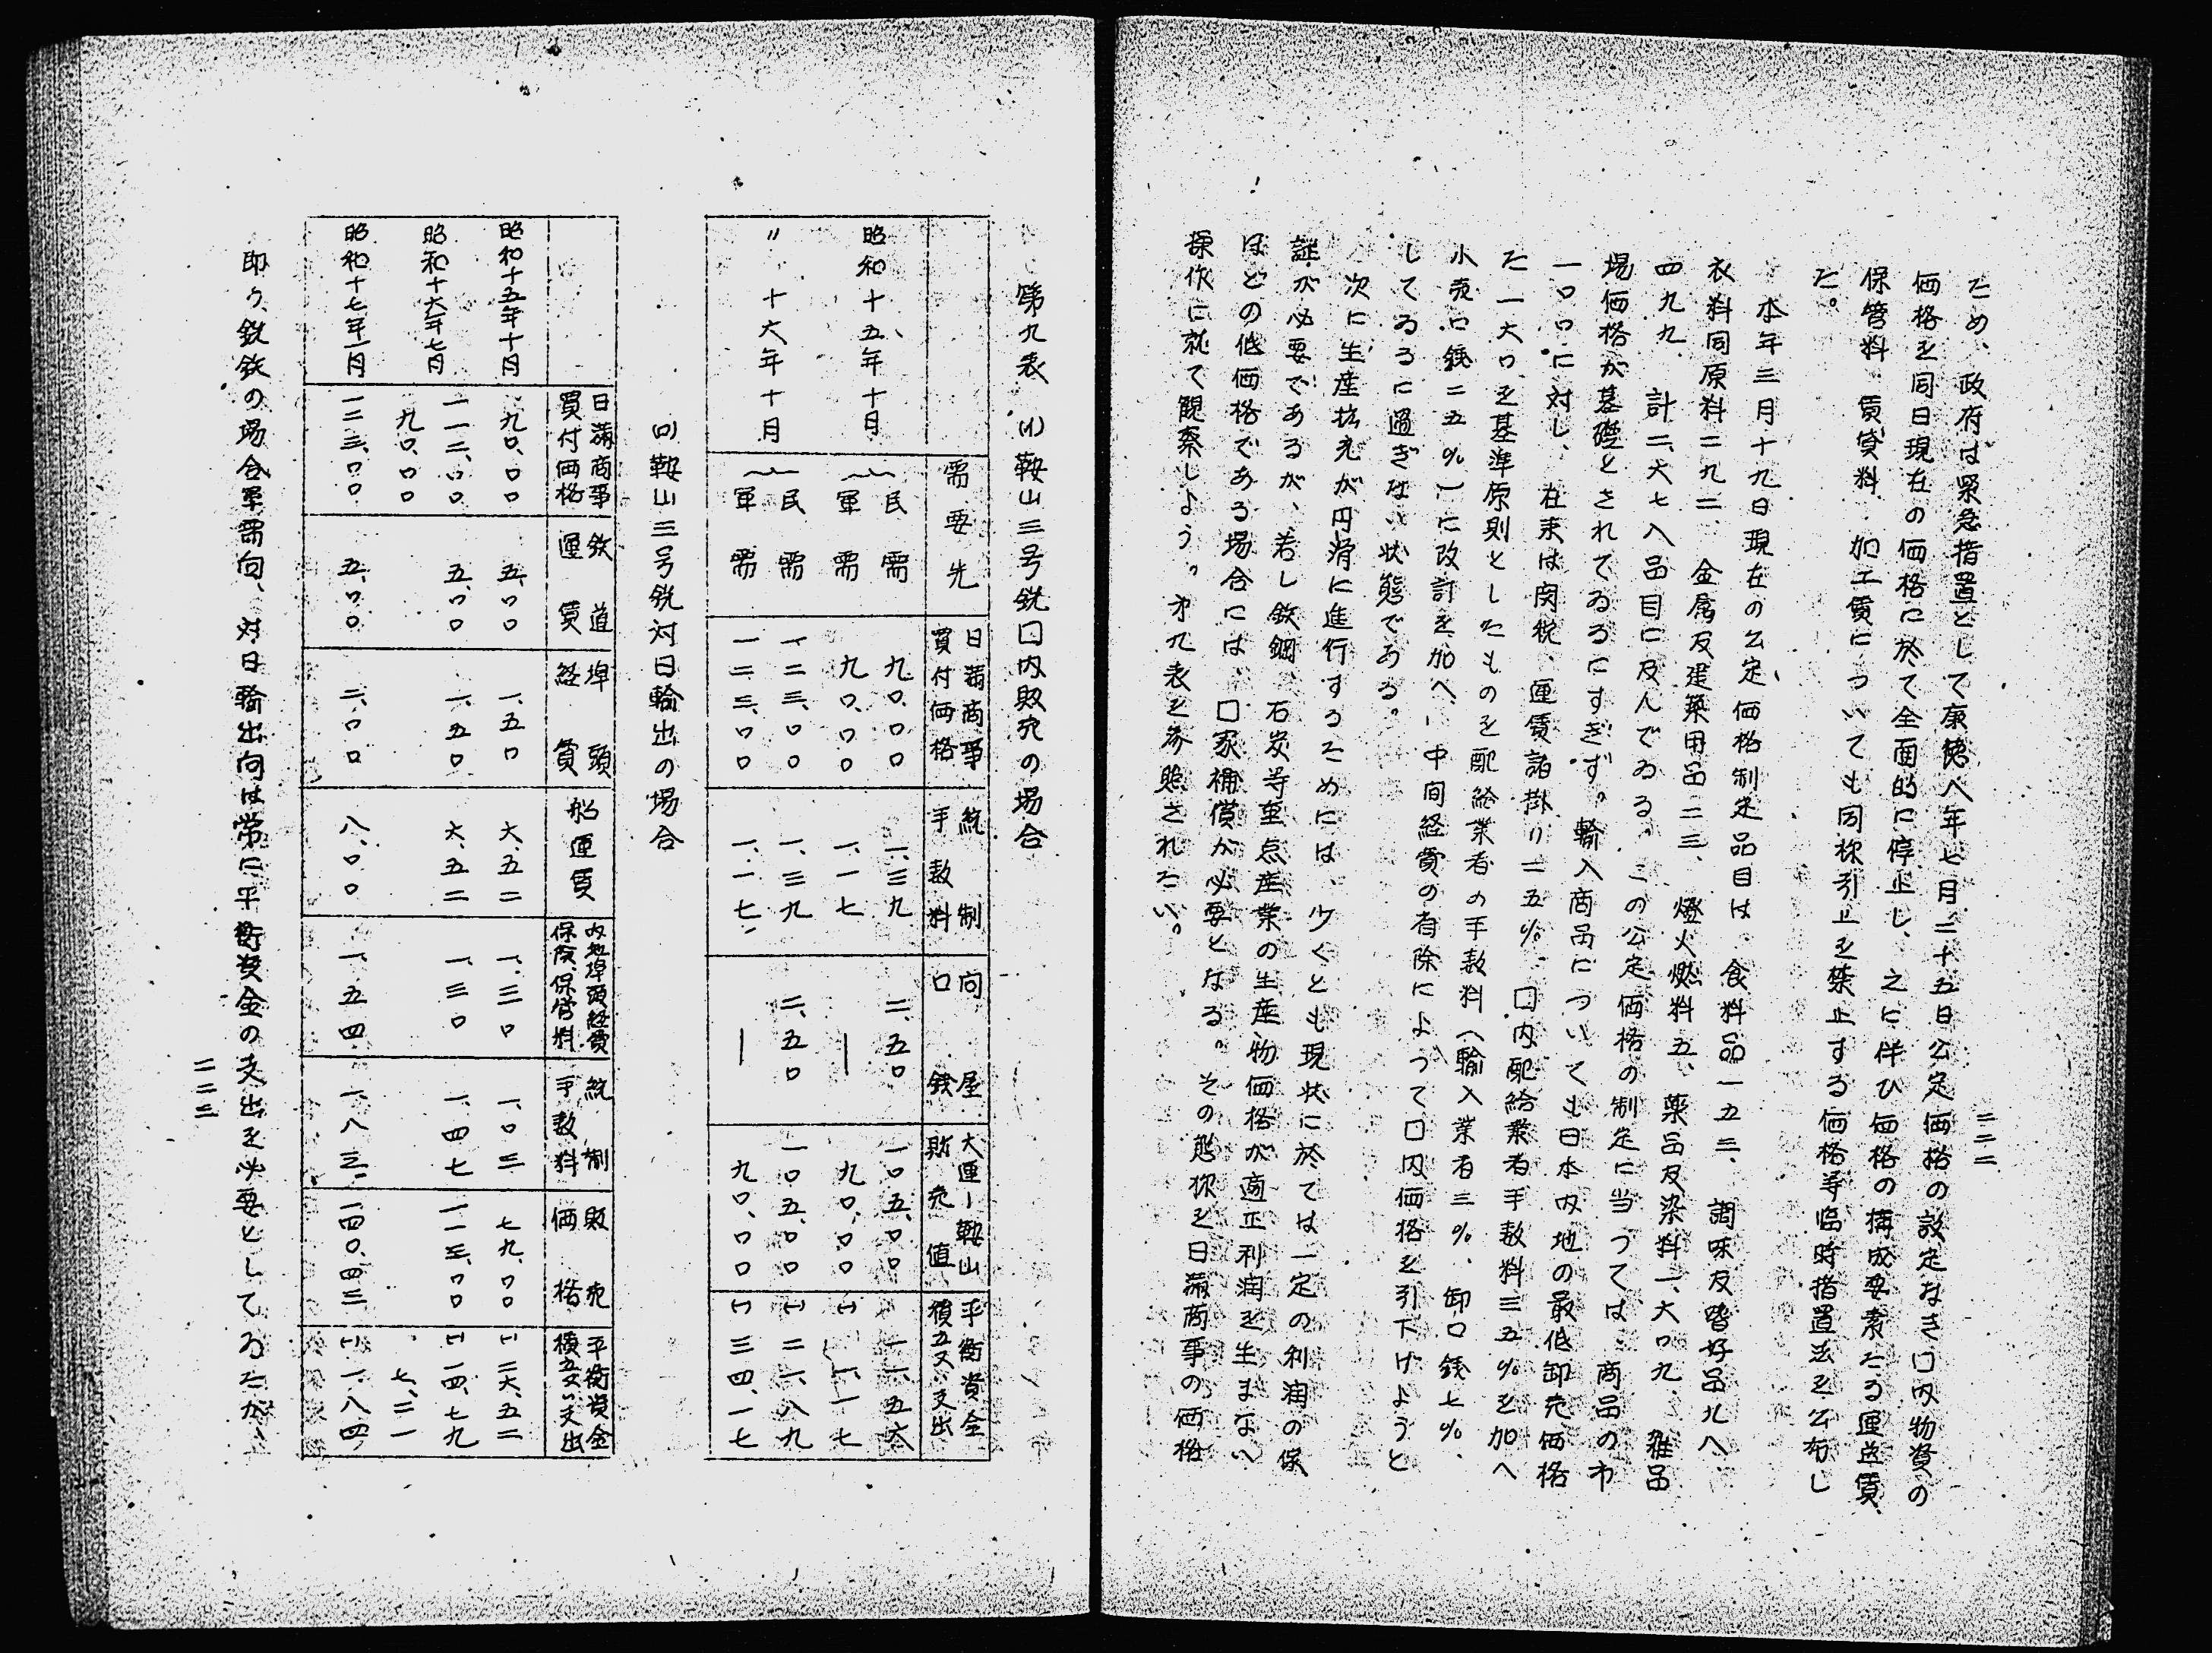 二二二
ため、政府は緊急措置として康徳八年七月二十五日公定価格の設定なき口内物資の
価格を同日現在の価格に於て全面的に停止し、之に伴ひ価格の構成要素たる運送賃、
保管料、賃貸料、加工賃についても同様引上を禁止する価格等臨時措置法を公布し
た。
本年三月十九日現在の公定価格制定品目は、食料品一五三、調味及嗜好品九八、
衣料同原料二九二、金属及建築用品二三、燈火燃料五、薬品及染料一、六〇九、雑品
四九九、計二、六七八品目に及んでゐる。この公定価格の制定に当つては、商品の市
場価格が基礎とされてゐるにすぎず。輸入商品についても日本内地の最低卸売価格
一〇〇に対し、在来は関税、運賃諸掛リ二五%、口内配給業者手数料三五%を加へ
た一六〇を基準原則としたものを配給業者の手数料へ輸入業者三%、卸口銭七%、
小売口銭二五%ーに改訂を加へ、ー中間経費の削除によつて口内価格を引下げようと
してゐるに過ぎない状態である。
次に生産拡充が円滑に進行するためには、少くとも現状に於ては一定の利潤の保
証が必要であるが、若し鉄鋼、石炭等重点産業の生産物価格が適正利潤を生まない
ほどの低価格である場合には、口家補償が必要となる。その態様を日満商事の価格
操作に就て観察しよう。才九表を参照されたい。
第九表 (イ)鞍山三号銑口内販売の場合
需要先 日満商事買付価格 統制手数料 向屋口銭 大連ー鞍山販売値 平衡資金積立又ハ支出
昭和十五年十月 民需 九〇、〇〇 一、三九 二、五〇 一〇五、〇〇 一一、五六
軍需 九〇、〇〇 一、一七 ー 九〇、〇〇 (-) 一、一七
〃 十六年十月 民需 一二三、〇〇 一、三九 二、五〇 一〇五、〇〇 (-) 二一、八九
軍需 一二三、〇〇 一、一七 ー 九〇、〇〇 (-) 三四、一七
(ロ)鞍山三号銑対日輸出の場合
日満商事買付価格 鉄道運賃 埠頭経費 船運賃 内地埠頭経費保険、保管料 統制手数料 販売価格 平衡資金積立又ハ支出
昭和十五年十月 九〇、〇〇 五、〇〇 一、五〇 六、五二 一、三〇 一、〇三 七九、〇〇 (-) 二六、五二
昭和十六年七月 一一二、〇〇 五、〇〇 一、五〇 六、五二 一、三〇 一、四七 一一三、〇〇 (-) 一四、七九
九〇、〇〇 七、二一
昭和十七年一月 一二三、〇〇 五、〇〇 二、〇〇 八、〇〇 一、五四 一、八三 一四〇、四三 (-) 一、八四
即ち、銑鉄の場合軍需向、対日輸出向は常に平衡資金の支出を必要としてゐたが、
二二三